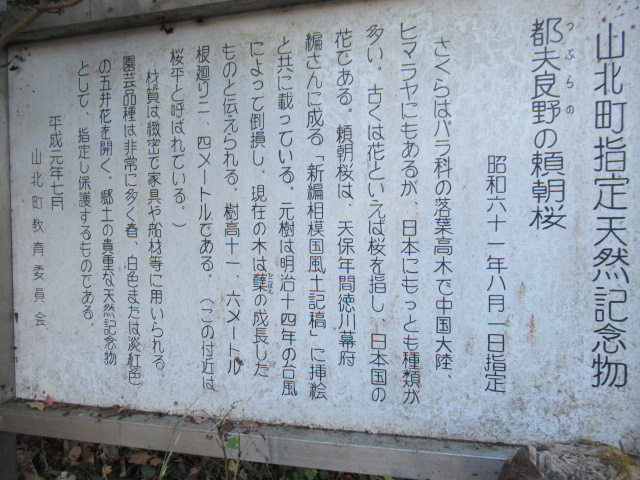 山北町指定天然記念物
都夫良野の頼朝桜
つぶらの
昭和六十一年八月一日指定
さくらはバラ科の落葉高木で中国大陸、
ヒマラヤにもあるが、日本にもっとも種類が
多い。古くは花といえば桜を指し、日本国の
花である。頼朝桜は、天保年間徳川幕府
編さんに成る「新編相模国風土記稿」に挿絵
と共に載っている。元樹は明治十四年の台風
によって倒損し、現在の木は蘖の成長した
ひこばえ
ものと伝えられる。樹高十一、六メートル
根廻り二、四メートルである。（この付近は
桜平と呼ばれている。）
材質は緻密で家具や船材等に用いられる。
園芸品種は非常に多く春、白色または淡紅色
の五弁花を開く、郷土の貴重な天然記念物
として、指定し保護するものである。
平成元年七月
山北町教育委員会